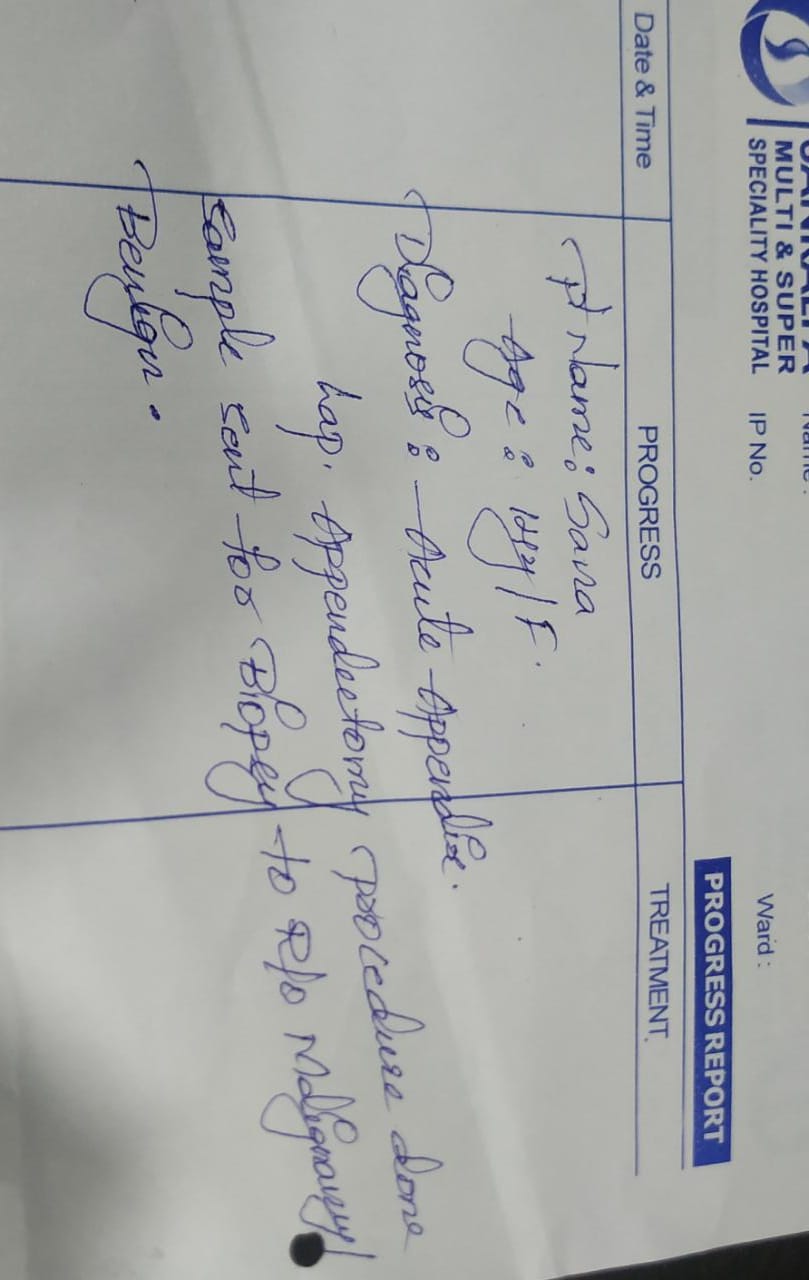 MULTI & SUPER
SPECIALITY HOSPITAL
Name :
IP No.
Ward :
PROGRESS REPORT
Date & Time PROGRESS TREATMENT
Pt Name: Sana
Age : /F.
Diagnosis : Acute Appendix.
Lap. Appendectomy procedure done
Sample sent for Biopsy to R/o Malignancy/
Benign.